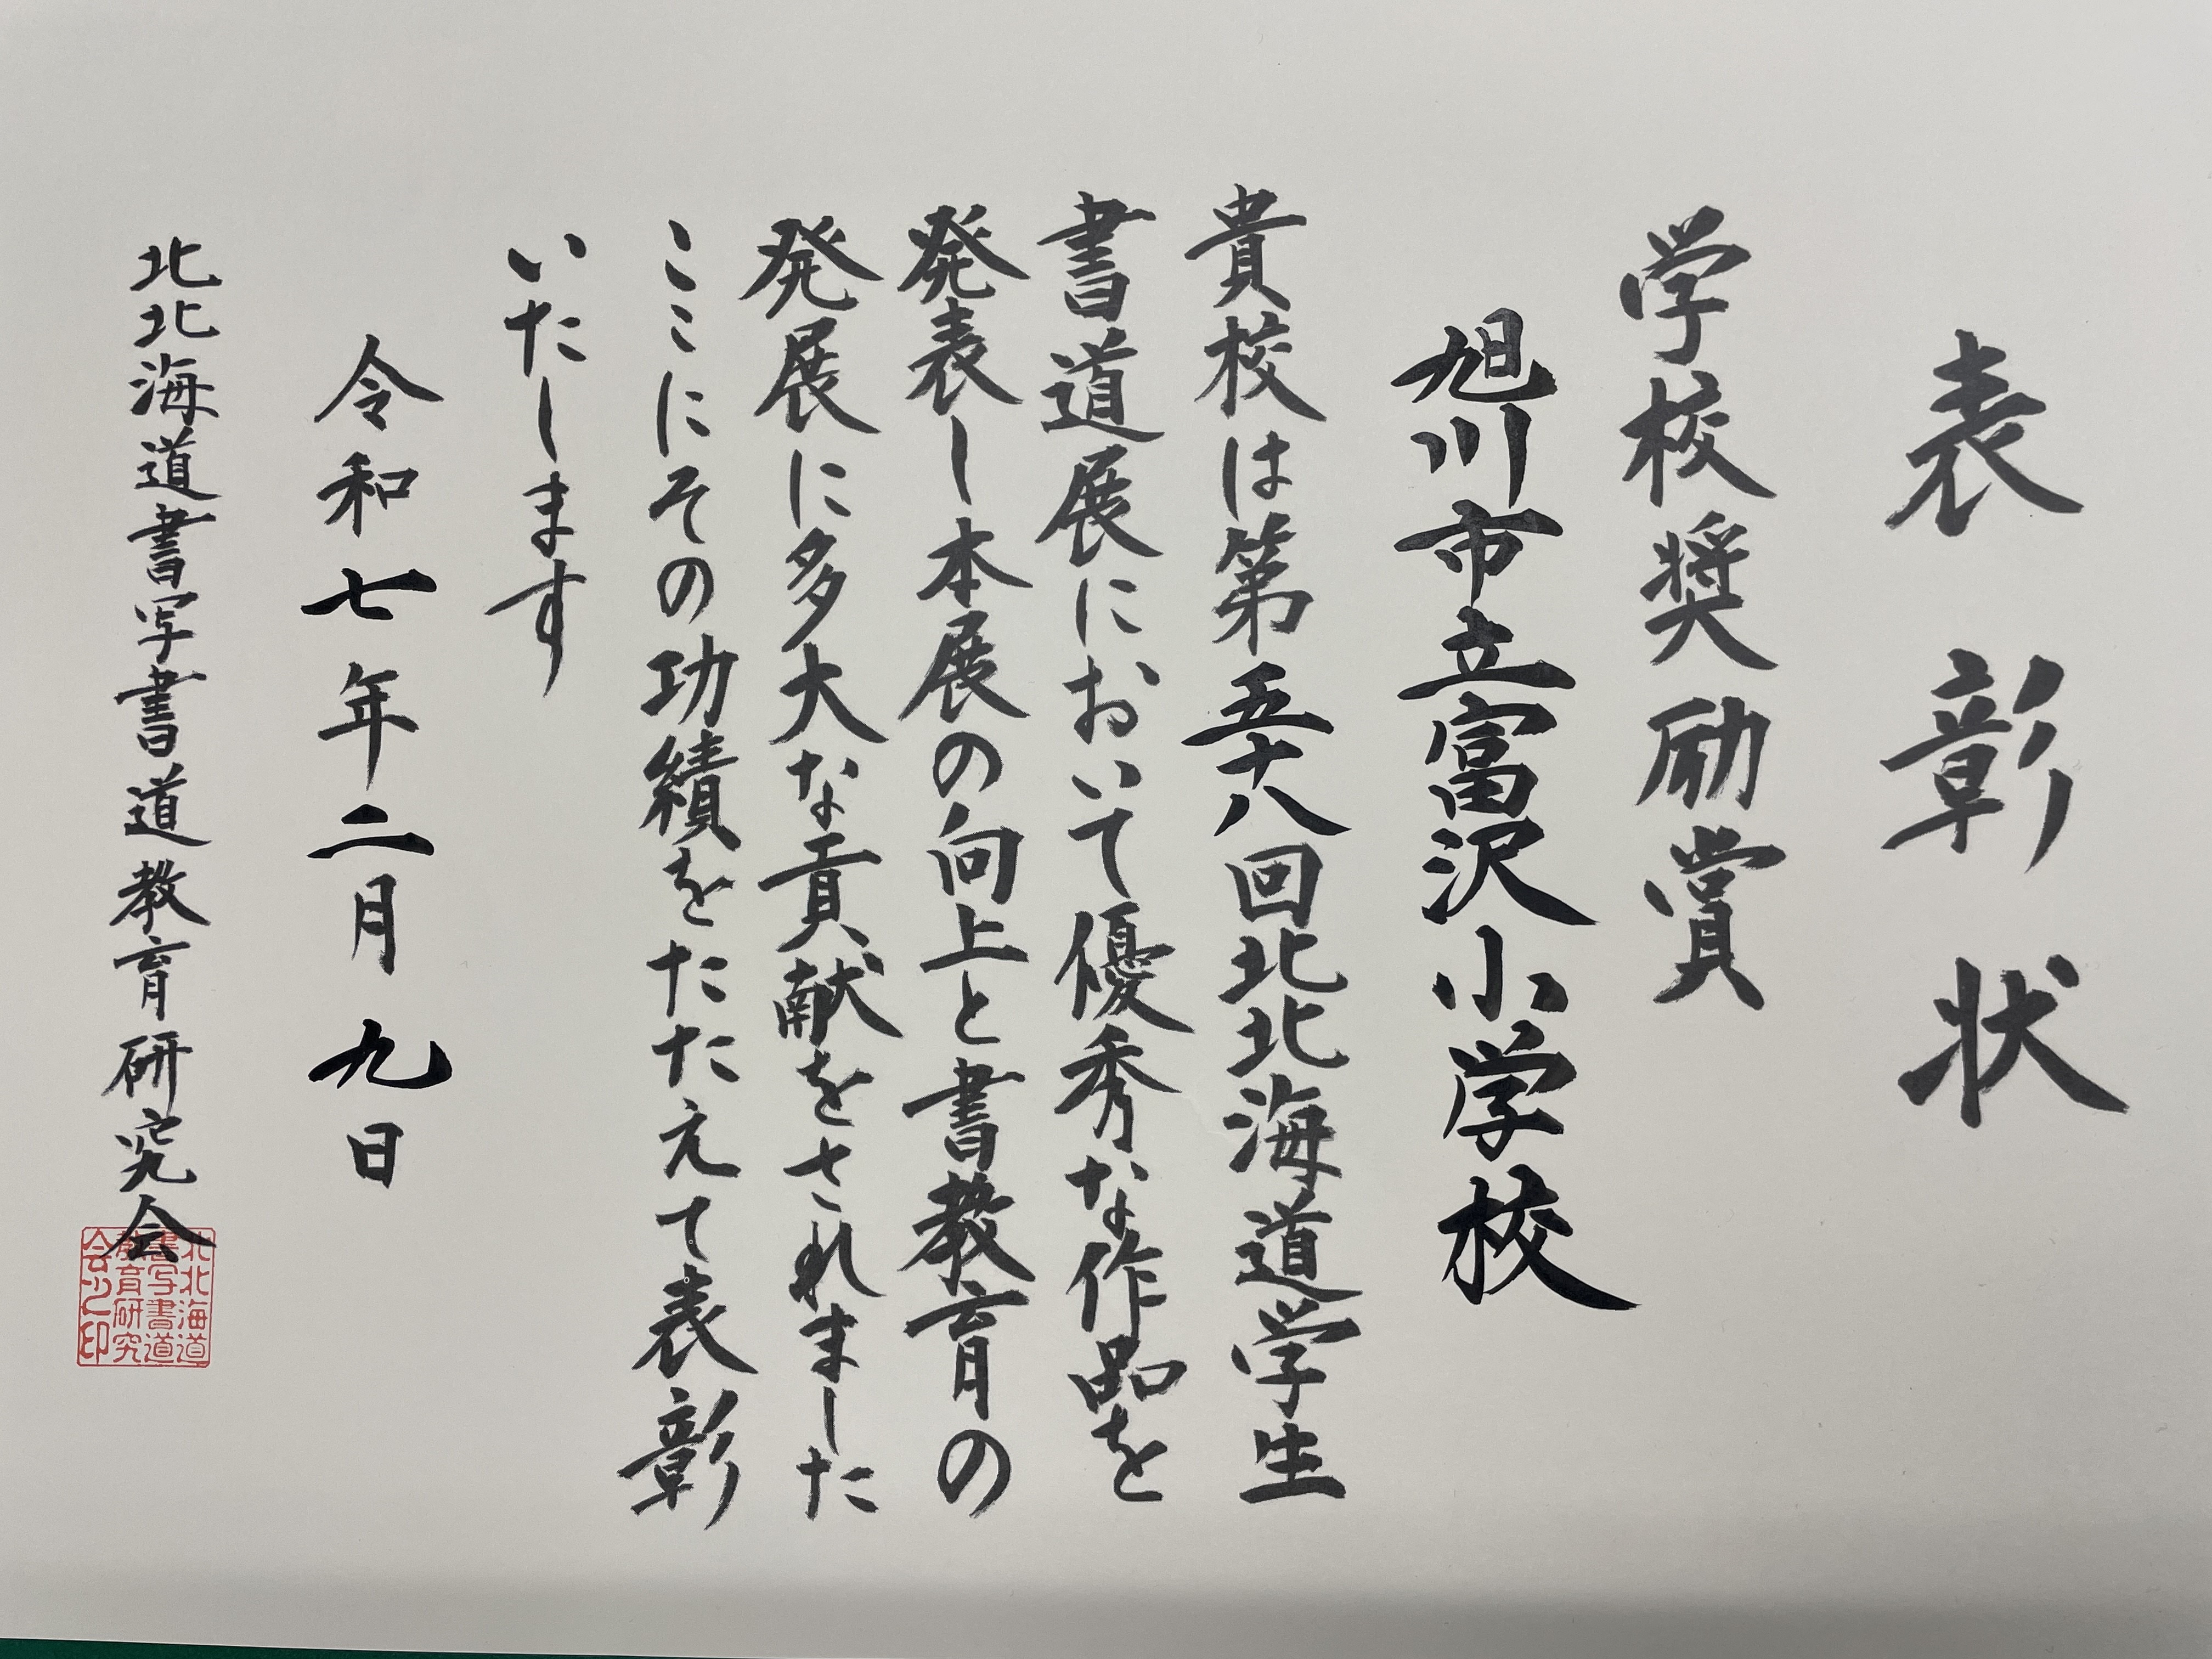 表彰状
学校奨励賞
旭川市立富沢小学校
貴校は第五十八回北北海道学生
書道展において優秀な作品を
発表し本展の向上と書教育の
発展に多大な貢献をされました
ここにその功績をたたえて表彰
いたします
令和七年二月九日
北北海道書写書道教育研究会
北北海道
書写書道
教育研究
会之印